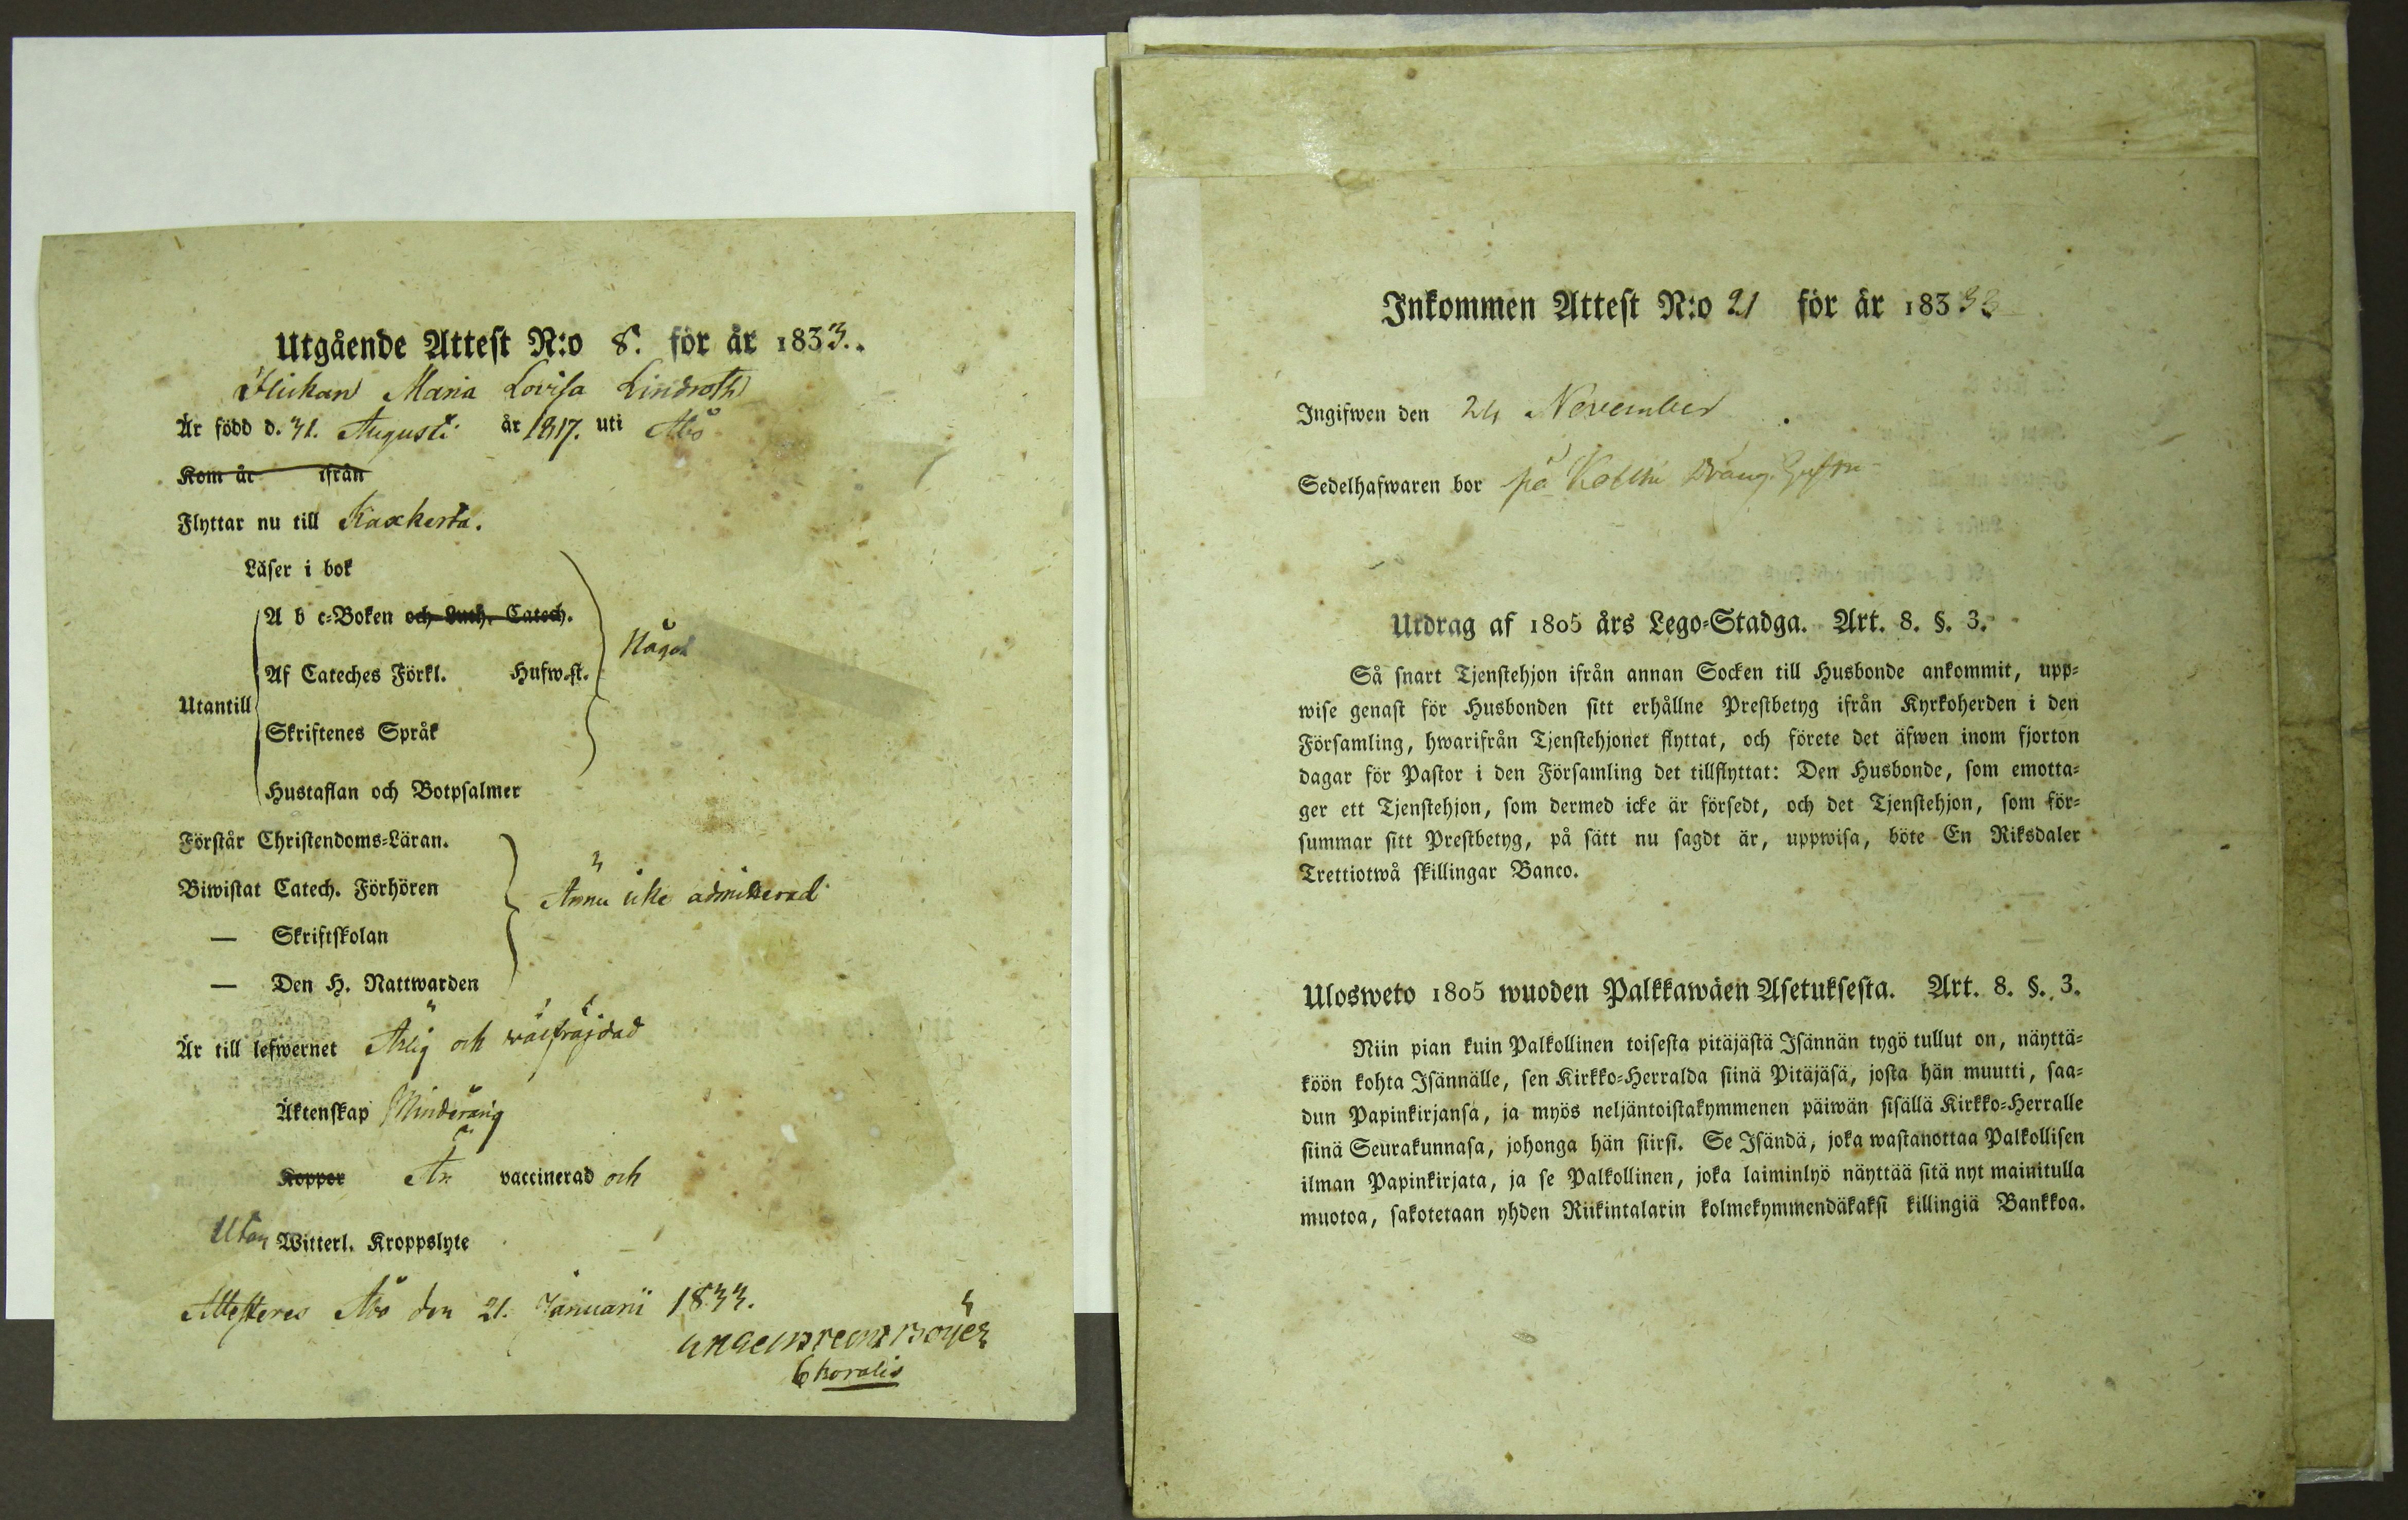 Utgående Attest N:o 8. för år 1833.
Flickan Maria Lovisa Lindroth
Är född d. 31. Augusti år 1817. uti Åbo
Kom år ifrån
Flyttar nu till Kaxkerta.
Läser i bok
A b c-Boken och Luth. Catech.
Något
Af Cateches Förkl. Hufw.st.
Utantill
Skriftenes Språk
Hustaflan och Botpsalmer
Förstår Christendoms-Läran.
Biwistat Catech. Förhören
Ännu icke admitterad
— Skriftskolan
— Den H. Nattwarden
Är till lefwernet Ärlig och välfräjdad
Äktenskap Minderårig
Kopper Är vaccinerad och
Utan Witterl. Kroppslyte
Attesteras Åbo den 21. Januarii 1833.
Inkommen Attest N:o 21 för år 18333
Ingifwen den 24 November
Sedelhafwaren bor på
Utdrag af 1805 års Lego-Stadga. Art. 8. §. 3.
Så snart Tjenstehjon ifrån annan Socken till Husbonde ankommit, upp-
wise genast för Husbonden sitt erhållne Prestbetyg ifrån Kyrkoherden i den
Församling, hwarifrån Tjenstehjonet flyttat, och förete det äfwen inom fjorton
dagar för Pastor i den Församling det tillflyttat: Den Husbonde, som emotta-
ger ett Tjenstehjon, som dermed icke är försedt, och det Tjenstehjon, som för-
summar sitt Prestbetyg, på sätt nu sagdt är, uppwisa, böte En Riksdaler
Trettiotwå skillingar Banco.
Ulosweto 1805 wuoden Palkkawäen Asetuksesta. Art. 8. §. 3.
Niin pian kuin Palkollinen toisesta pitäjästä Isännän tygö tullut on, näyttä-
köön kohta Isännälle, sen Kirkko-Herralda siinä Pitäjäsä, josta hän muutti, saa-
dun Papinkirjansa, ja myös neljäntoistakymmenen päiwän sisällä Kirkko-Herralle
siinä Seurakunnasa, johonga hän siirsi. Se Isändä, joka wastanottaa Palkollisen
ilman Papinkirjata, ja se Palkollinen, joka laiminlyö näyttää sitä nyt mainitulla
muotoa, sakotetaan yhden Riikintalarin kolmekymmendäkaksi killingiä Bankkoa.